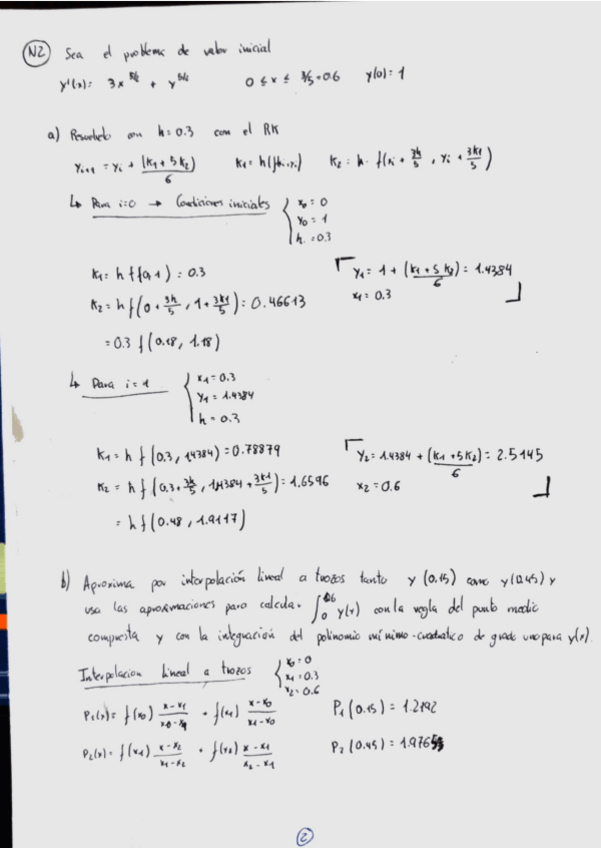 N2 Sea el problema de valor inicial
y'(x) = 3x^5/2 + y^5/2 0 ≤ x ≤ 3/5 = 0.6 y(0) = 1
a) Resuelvelo con h = 0.3 con el RK
Yi+1 = Yi + (K1 + 5K2)/6 K1 = h f(xi, yi) K2 = h · f(xi + 3h/5, Yi + 3K1/5)
↳ Para i=0 → Condiciones iniciales { x0 = 0
y0 = 1
h = 0.3
K1 = h f(0,1) = 0.3 Y1 = 1 + (K1 + 5K2)/6 = 1.4384
K2 = h f(0 + 3h/5, 1 + 3K1/5) = 0.46613 x1 = 0.3
= 0.3 f(0.18, 1.18)
↳ Para i = 1 { x1 = 0.3
Y1 = 1.4384
h = 0.3
K1 = h f(0.3, 1.4384) = 0.78879 Y2 = 1.4384 + (K1 + 5K2)/6 = 2.5145
K2 = h f(0.3 + 3h/5, 1.4384 + 3K1/5) = 1.6596 x2 = 0.6
= h f(0.48, 1.9117)
b) Aproxima por interpolación lineal a trozos tanto y(0.15) como y(0.45) y
usa las aproximaciones para calcular ∫0^0.6 y(x) con la regla del punto medio
compuesta y con la integración del polinomio mínimo-cuadratico de grado uno para y(x).
Interpolacion lineal a trozos { x0 = 0
x1 = 0.3
x2 = 0.6
P1(x) = f(x0) x-x1/x0-x1 + f(x1) x-x0/x1-x0 P1(0.15) = 1.2192
P2(x) = f(x1) x-x2/x1-x2 + f(x2) x-x1/x2-x1 P2(0.45) = 1.9765
2